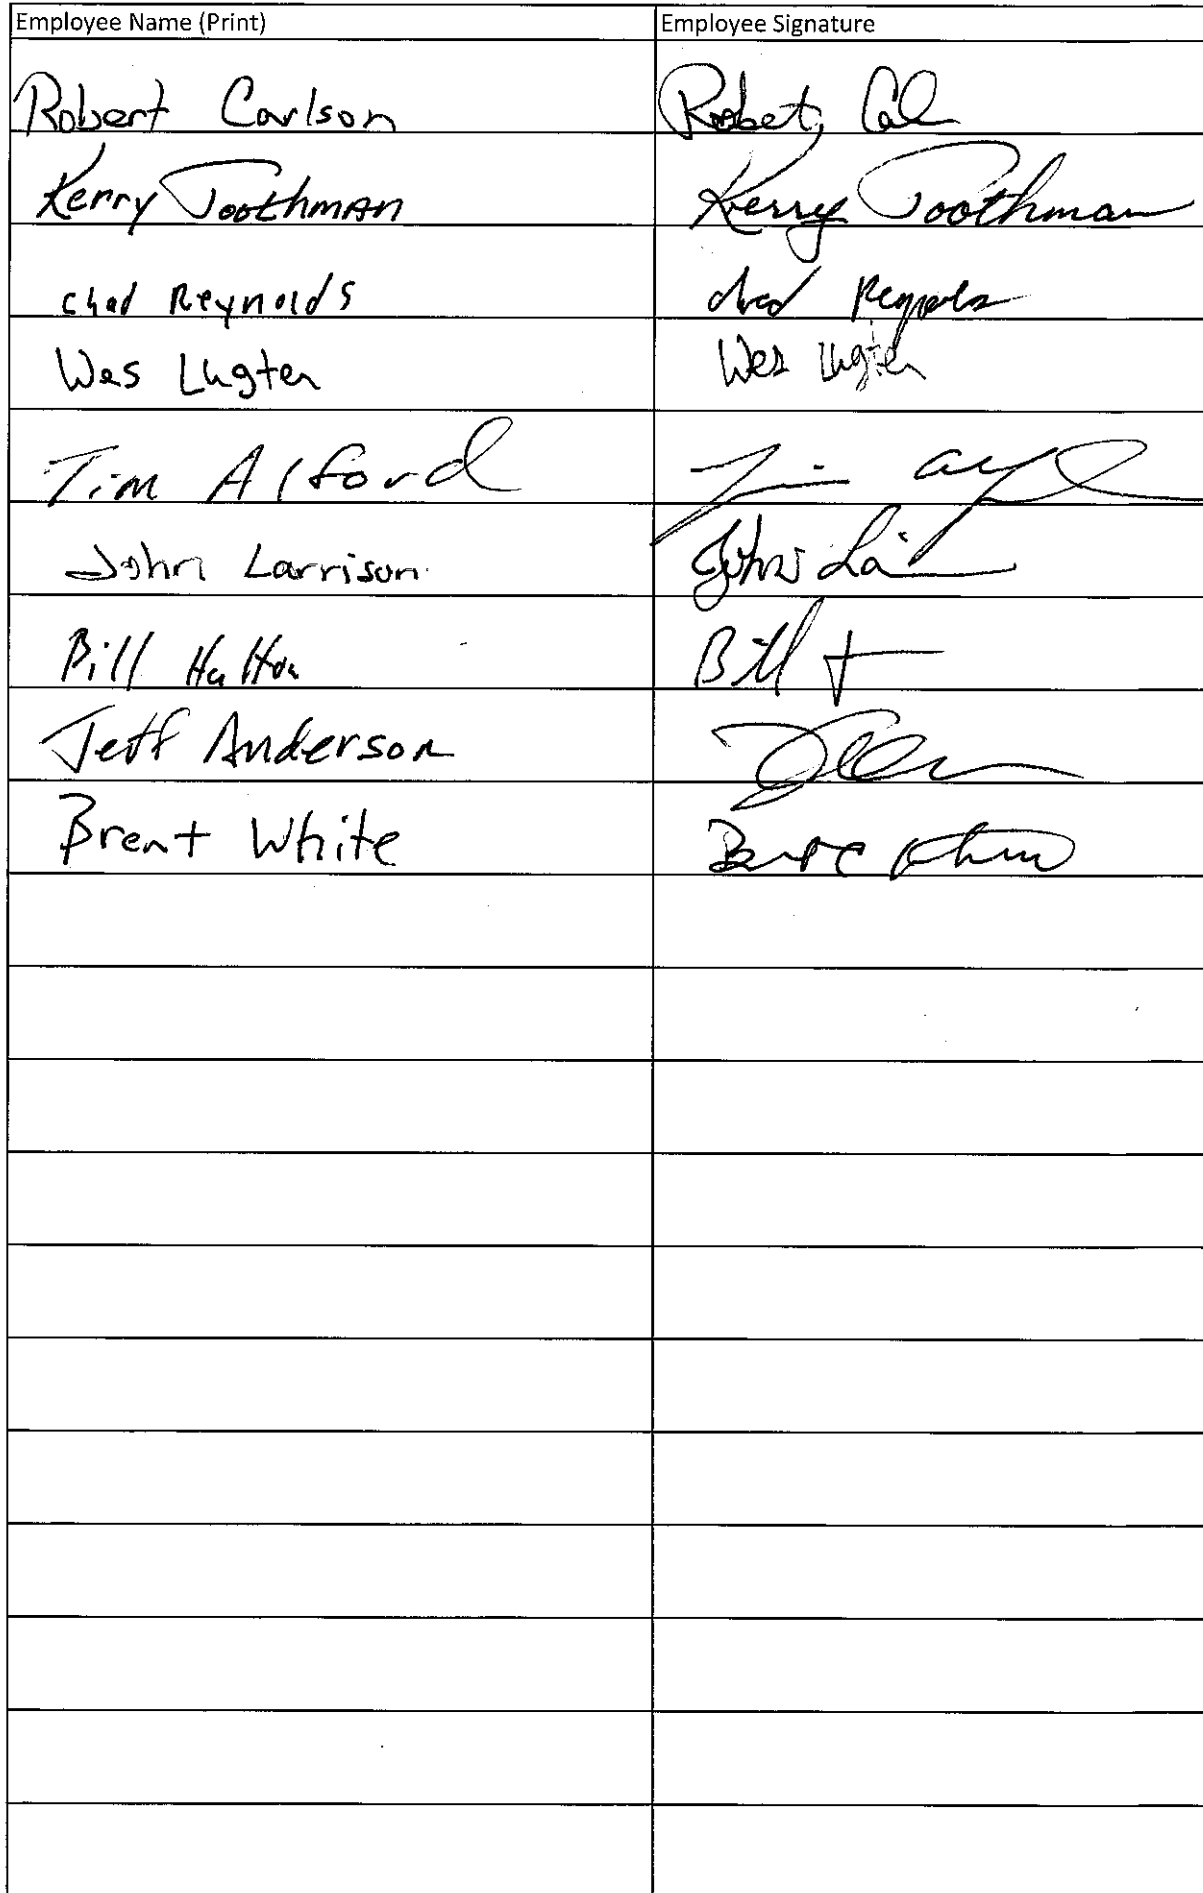 Employee Name (Print) Employee Signature
Robert Carlson Robert
Kerry Toothman Kerry Toothman
Chad Reynolds Chad Reynolds
Wes Lugten Wes Lugten
Tim Alford Tim
John Larrison John
Bill Bill
Jeff Anderson
Brent White